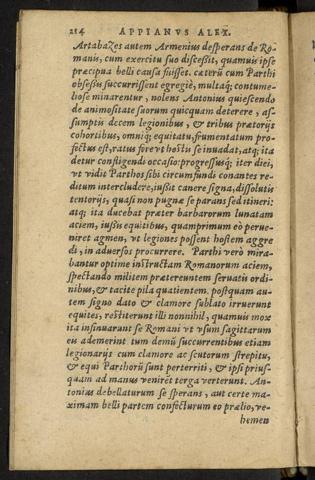 214 APPIANVS ALEX.
Artabazes autem Armenius desperans de Ro-
manis, cum exercitu suo discessit, quamuis ipse
præcipua belli causa fuisset. cæterũ cum Parthi
obsessis succurrissent egregiè, multaq; contume-
liose minarentur, nolens Antonius quiescendo
de animositate suorum quicquam deterere, as-
sumptis decem legionibus, & tribus prætorijs
cohortibus, omniq; equitatu, frumentatum pro-
fectus est, ratus fore vt hostis se inuadat, atq; ita
detur confligendi occasio: progressusq; iter diei,
vt vidit Parthos sibi circumfundi conantes re-
ditum intercludere, iussit canere signa, dissolutis
tentorijs, quasi non pugnæ se parans sed itineri:
atq; ita ducebat præter barbarorum lunatam
aciem, iussis equitibus, quamprimum eò perue-
niret agmen, vt legiones possent hostem aggre
di, in aduersos procurrere. Parthi verò mira-
bantur optime instructam Romanorum aciem,
spectando militem prætereuntem seruatis ordi-
nibus, & tacite pila quatientem. postquam au-
tem signo dato & clamore sublato irruerunt
equites, restiterunt illi nonnihil, quamuis mox
ita insinuarant se Romani vt vsum sagittarum
eis ademerint tum demũ succurrentibus etiam
legionarijs cum clamore ac scutorum strepitu,
& equi Parthorũ sunt perterriti, & ipsi prius-
quam ad manus veniret terga verterunt. An-
tonius debellaturum se sperans, aut certe ma-
ximam belli partem confecturum eo prælio, ve-
hemen